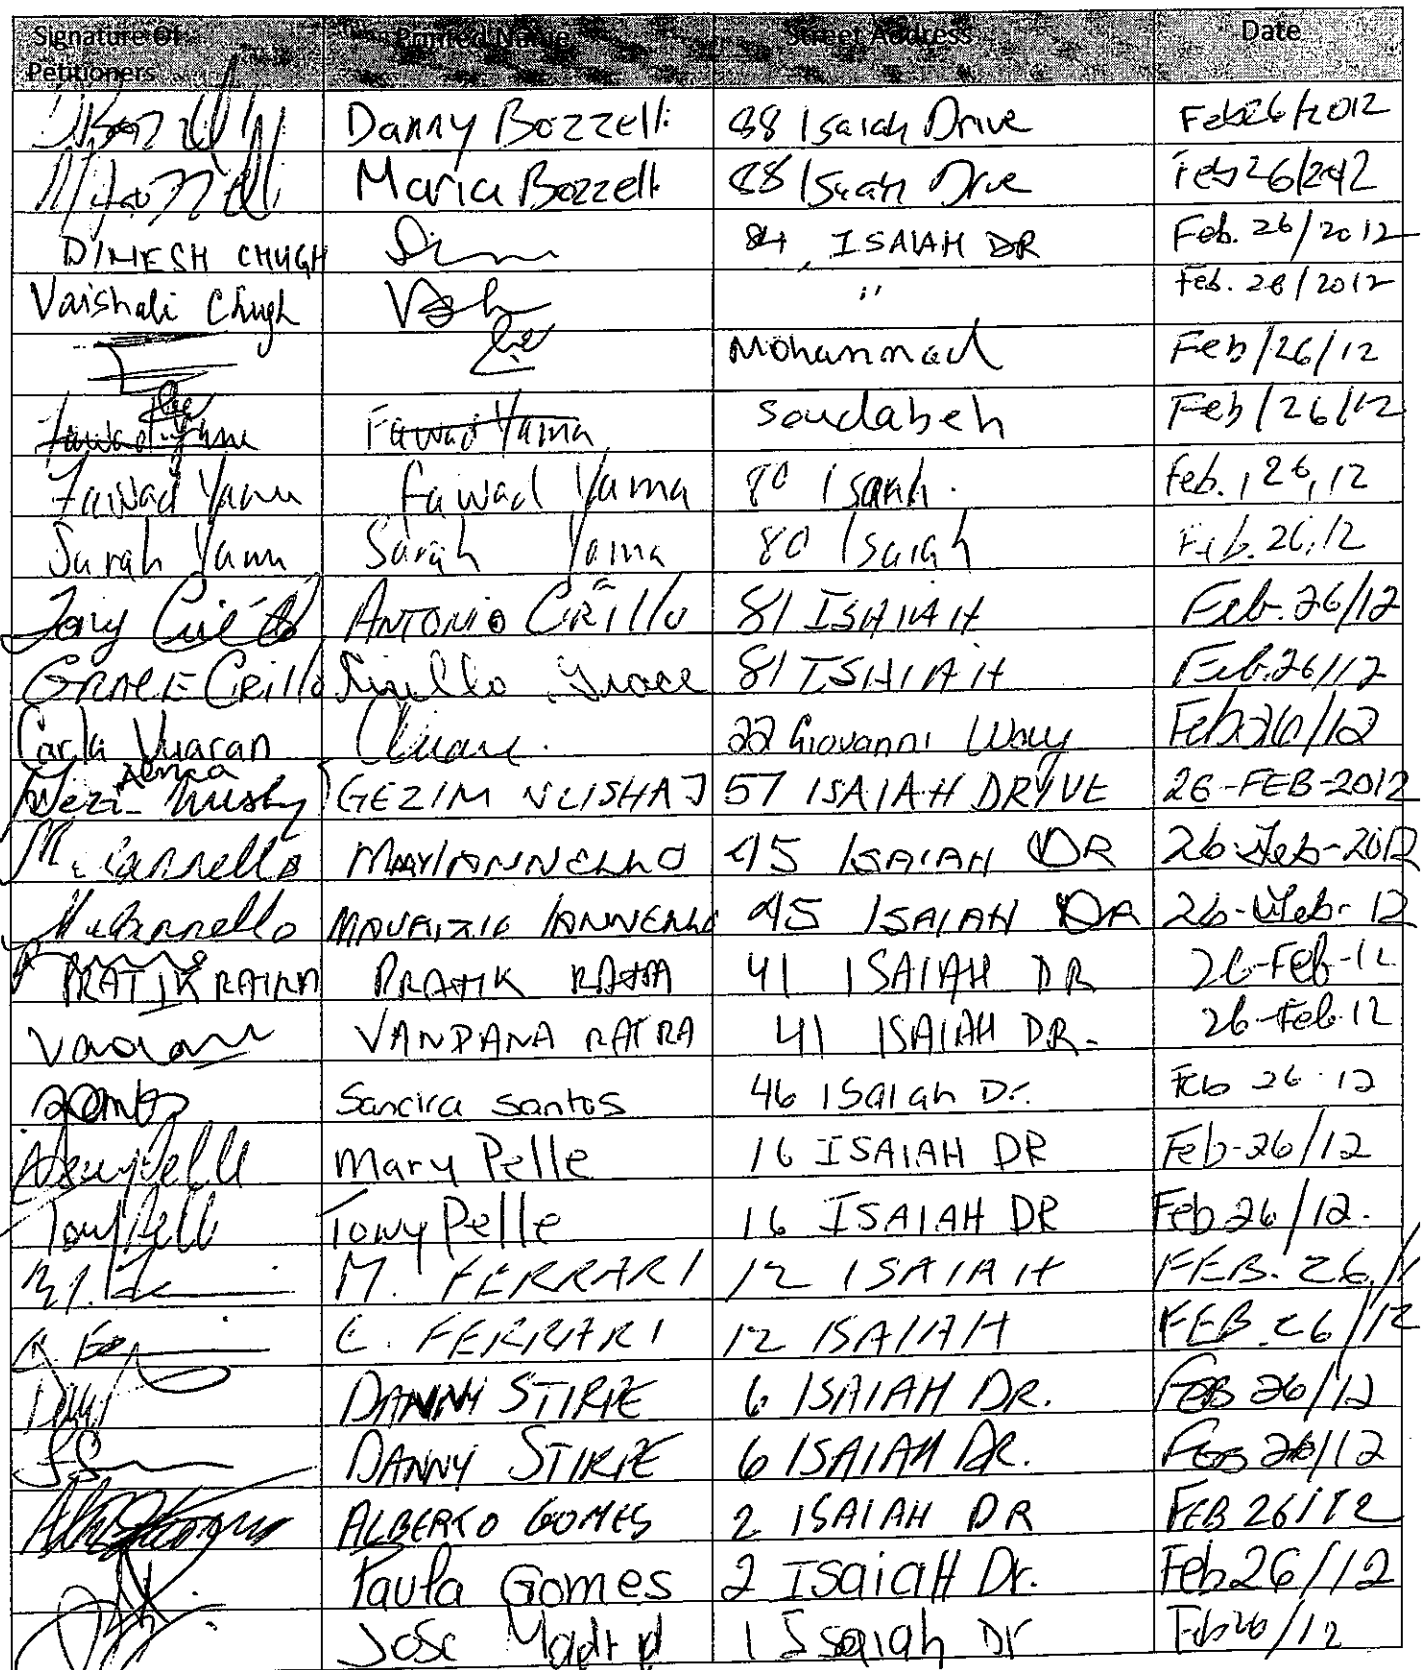 Signature Of Petitioners Printed Name Street Address Date
Danny Bozzelli 88 Isaiah Drive Feb 26/2012
Maria Bozzelli 88 Isaiah Drive Feb 26/2012
DINESH CHUGH 84, ISAIAH DR Feb. 26/2012
Vaishali Chugh " Feb. 26/2012
Mohammad Feb/26/12
Fawad Yama Fawad Yama Soudabeh Feb/26/12
Fawad Yama Fawad Yama 80 Isaiah. Feb., 26, 12
Sarah Yama Sarah Yama 80 Isaiah Feb. 26, 12
Tony Cirillo ANTONIO CIRILLO 81 ISAIAH Feb. 26/12
GRACE Cirillo Cirillo Grace 81 ISAIAH Feb. 26/12
Carla Vuaran 22 Giovanni Way Feb 26/12
GEZIM NLISHAJ 57 ISAIAH DRYVE 26-FEB-2012
M. Iannello MAY IANNELLO 45 ISAIAH DR 26-Feb-2012
M. Iannello MAURIZIO IANNELLO 45 ISAIAH DR 26-Feb-12
PRATIK RATRA PRATIK RATRA 41 ISAIAH DR 26-Feb-12
VANDANA RATRA 41 ISAIAH DR. 26-Feb-12
Santos Sancira Santos 46 Isaiah Dr. Feb 26 12
Mary Pelle Mary Pelle 16 ISAIAH DR Feb-26/12
Tony Pelle Tony Pelle 16 ISAIAH DR Feb 26/12.
M. FERRARI 12 ISAIAH FEB. 26/1
C. FERRARI 12 ISAIAH FEB. 26/12
DANNY STIRPE 6 ISAIAH DR. FEB 26/12
DANNY STIRPE 6 ISAIAH DR. FEB 26/12
ALBERTO GOMES 2 ISAIAH DR FEB 26/12
Paula Gomes 2 ISaiaH Dr. Feb 26/12
Jose Madrid 1 Isaiah Dr Feb 26/12